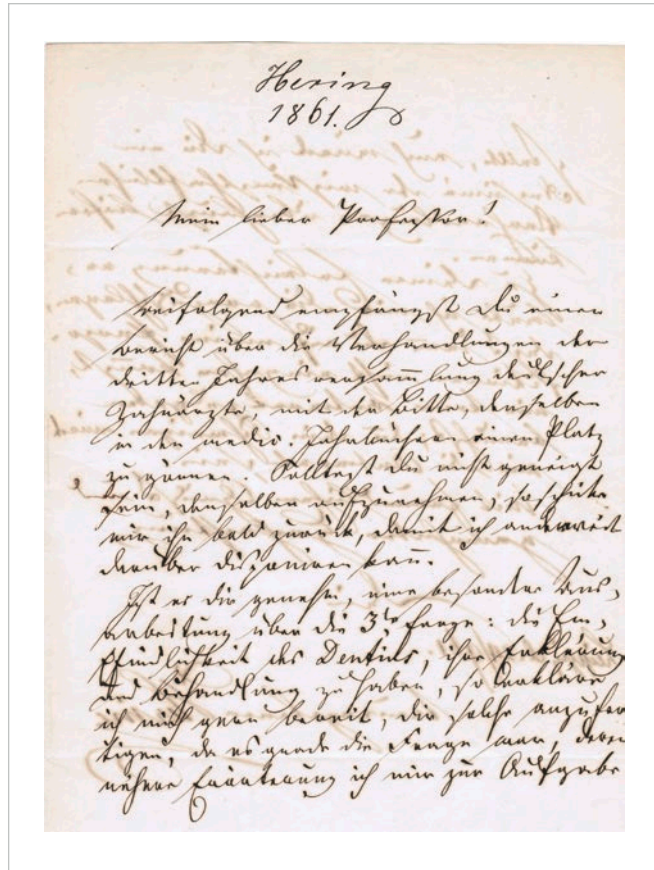 Hering
1861.
Mein lieber Professor!
beifolgend empfängst Du einen
Bericht über die Verhandlungen der
dritten Jahresversammlung deutscher
Zahnärzte, mit der Bitte, denselben
in den medic. Jahrbüchern einen Platz
zu gönnen. Solltest Du nicht geneigt
sein, denselben aufzunehmen, so schicke
mir ihn bald zurück, damit ich anderweit
darüber disponiren kann.
Ist es dir genehm, eine besondere Aus-
arbeitung über die 3te Frage: die Em-
pfindlichkeit des Dentins, ihre Erklärung
und Behandlung zu haben, so erkläre
ich mich gern bereit, dir solche anzufer
tigen, da es grade die Frage war, deren
nähere Erörterung ich mir zur Aufgabe